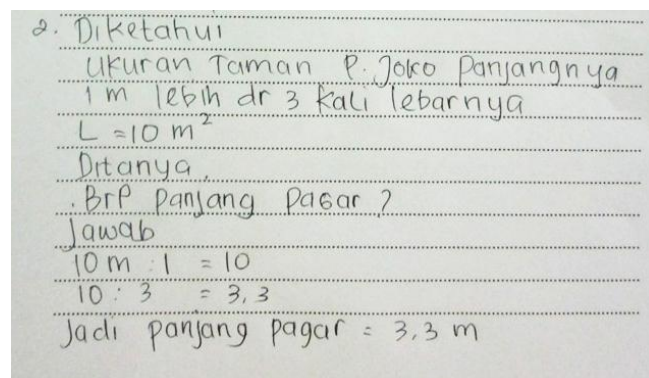 2. Diketahui
Ukuran Taman P. Joko Panjangnya
1 m lebih dr 3 kali lebarnya
L = 10 m²
Ditanya.
. Brp Panjang Pagar ?
Jawab
10 m : 1 = 10
10 : 3 = 3,3
Jadi panjang pagar = 3,3 m